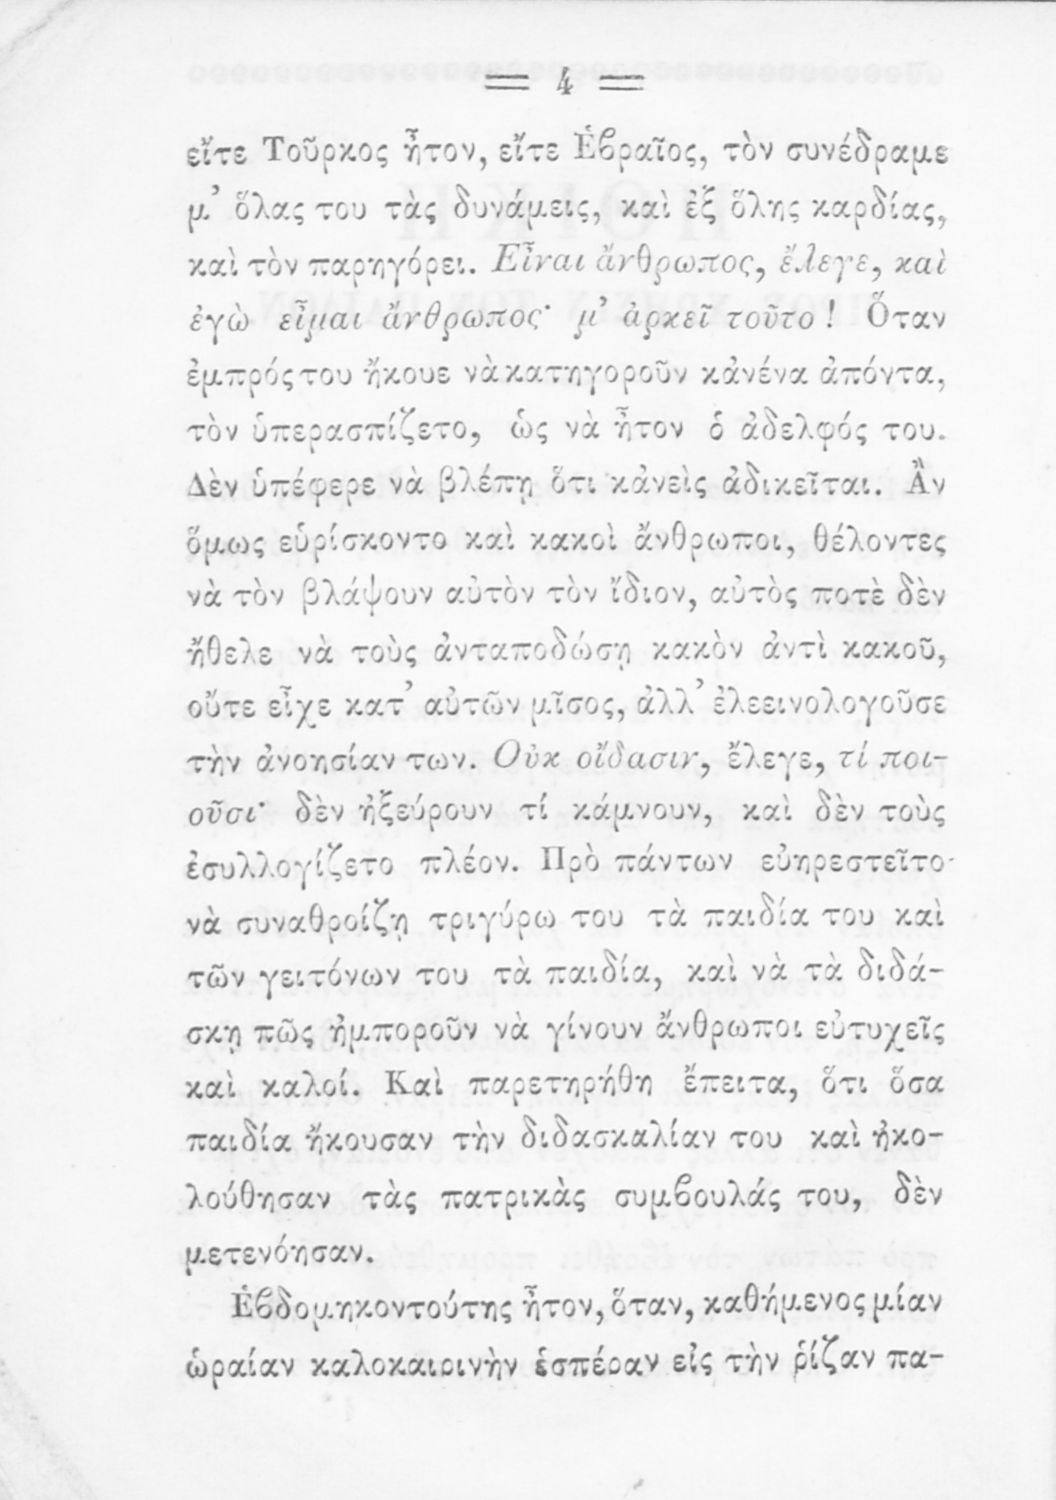 = 4 =
εἴτε Τοῦρκος ἦτον, εἴτε Ἑβραῖος, τὸν συνέδραμε
μ᾽ ὅλας του τὰς δυνάμεις, καὶ ἐξ ὅλης καρδίας,
καὶ τὸν παρηγόρει. Εἶναι ἄνθρωπος, ἔλεγε, καὶ
ἐγὼ εἶμαι ἄνθρωπος· μ᾽ ἀρκεῖ τοῦτο ! Ὅταν
ἐμπρός του ἤκουε νὰ κατηγοροῦν κἀνένα ἀπόντα,
τὸν ὑπερασπίζετο, ὡς νὰ ἦτον ὁ ἀδελφός του.
Δὲν ὑπέφερε νὰ βλέπῃ ὅτι κἀνεὶς ἀδικεῖται. Ἂν
ὅμως εὑρίσκοντο καὶ κακοὶ ἄνθρωποι, θέλοντες
νὰ τὸν βλάψουν αὐτὸν τὸν ἴδιον, αὐτὸς ποτὲ δὲν
ἤθελε νὰ τοὺς ἀνταποδώσῃ κακὸν ἀντὶ κακοῦ,
οὔτε εἶχε κατ᾽ αὐτῶν μῖσος, ἀλλ᾽ ἐλεεινολογοῦσε
τὴν ἀνοησίαν των. Οὐκ οἴδασιν, ἔλεγε, τί ποι-
οῦσι· δὲν ἠξεύρουν τί κάμνουν, καὶ δὲν τοὺς
ἐσυλλογίζετο πλέον. Πρὸ πάντων εὐηρεστεῖτο
νὰ συναθροίζῃ τριγύρω του τὰ παιδία του καὶ
τῶν γειτόνων του τὰ παιδία, καὶ νὰ τὰ διδά-
σκῃ πῶς ἠμποροῦν νὰ γίνουν ἄνθρωποι εὐτυχεῖς
καὶ καλοί. Καὶ παρετηρήθη ἔπειτα, ὅτι ὅσα
παιδία ἤκουσαν τὴν διδασκαλίαν του καὶ ἠκο-
λούθησαν τὰς πατρικὰς συμβουλάς του, δὲν
μετενόησαν.
Ἑβδομηκοντούτης ἦτον, ὅταν, καθήμενος μίαν
ὡραίαν καλοκαιρινὴν ἑσπέραν εἰς τὴν ῥίζαν πα-